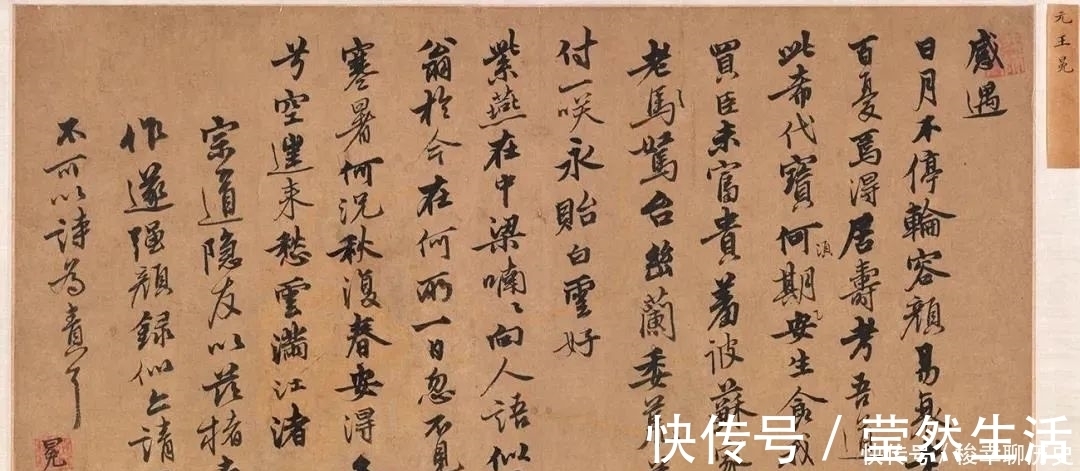 元王冕
感遇
日月不停輪容顏易
百憂焉得居壽考吾道
此希代寶何期安生食
買臣未富貴
老馬駑台幽蘭委
付一咲永貽白雲好
紫燕在中梁喃〻向人語似
翁於今在何所一日忽不見
寒暑何況秋復春安得
兮空遑来愁雲滿江渚
宗道隐友以茲楮
作遂强顏録似上請
不可以詩為責了
冕
快传号 / 莹然生活
快传号 / 梭羊聊历史